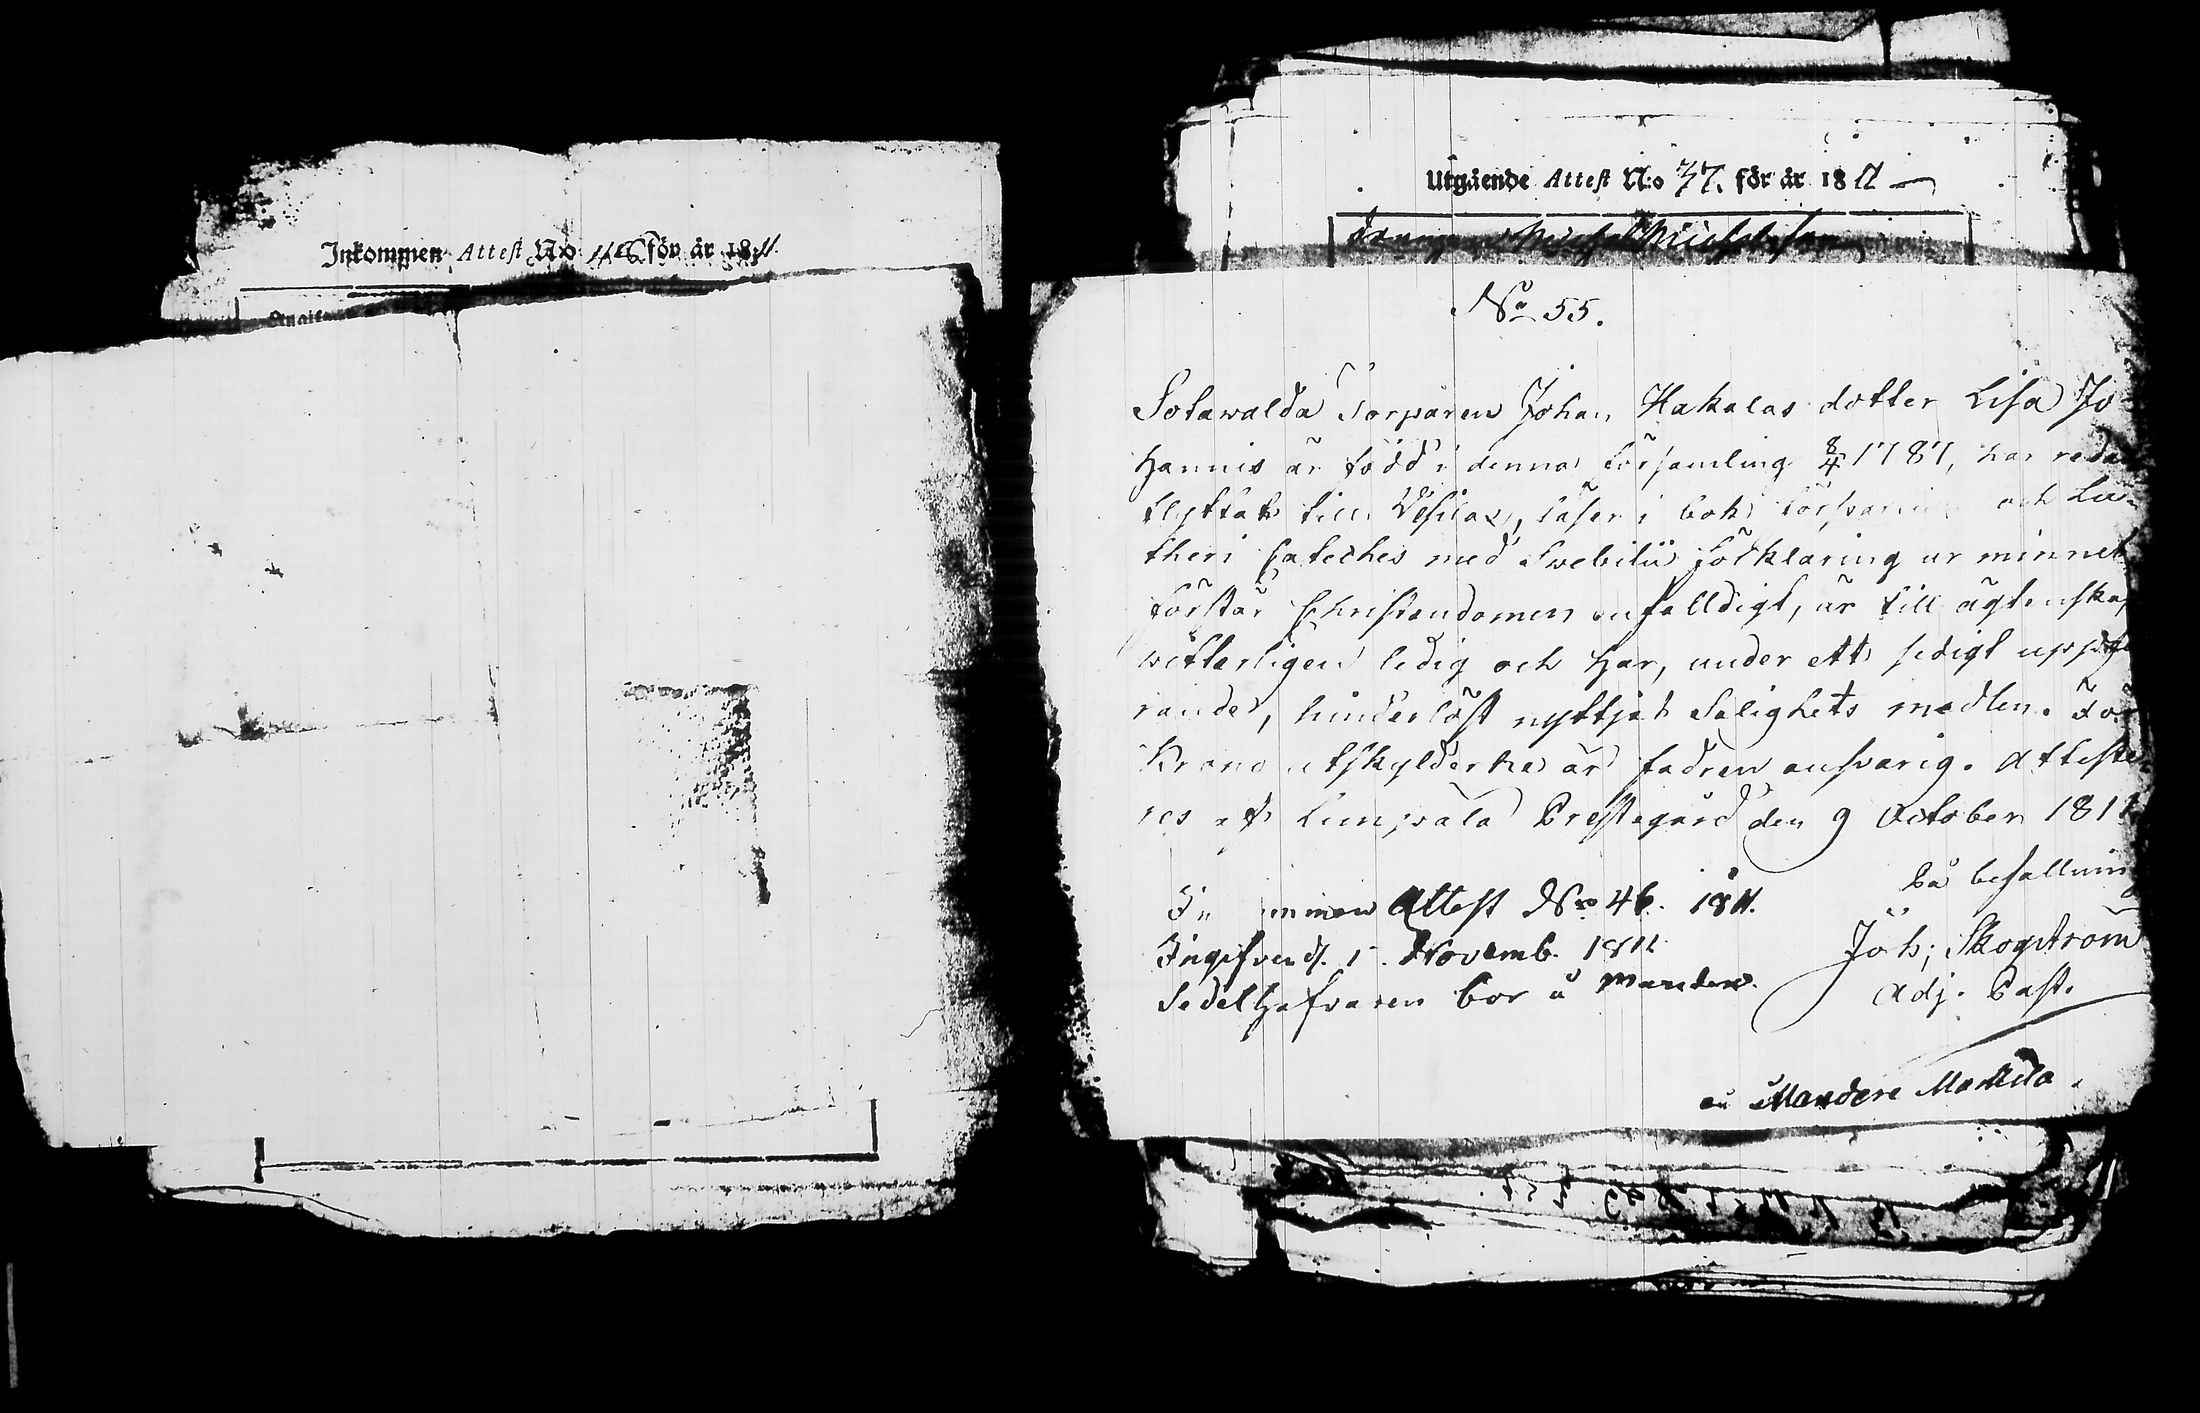 Inkommen Attest No 46 för år 1811
Utgående Attest N:o 37. för år 1811
No 55.
Sotawalda Torparen Johan Hakalas dotter Lisa Jo
hannis är född i denna Församling 8/4 1787, har redan
flyttat till Vesilax, läser i bok försvarlig och Lu-
theri Cateches med Swebilii Förklaring ur minnet
förstår Christendomen enfalldigt, är till ägtenskap
witterligen ledig och har, under ett sedigt uppfö
rande, hinderlöst nyttjat Salighets medlen. För
Krono utskylderne är fadren ansvarig. Atteste
res af Lempälä Prestegård den 9 October 1811
På befallning
Joh; Skogström
Adj. Past.
In mmen Attest No 46. 1811.
Ingifven d. 1 Novemb. 1811
Sedelhafvaren bor å Mandere
Mandere Mattila